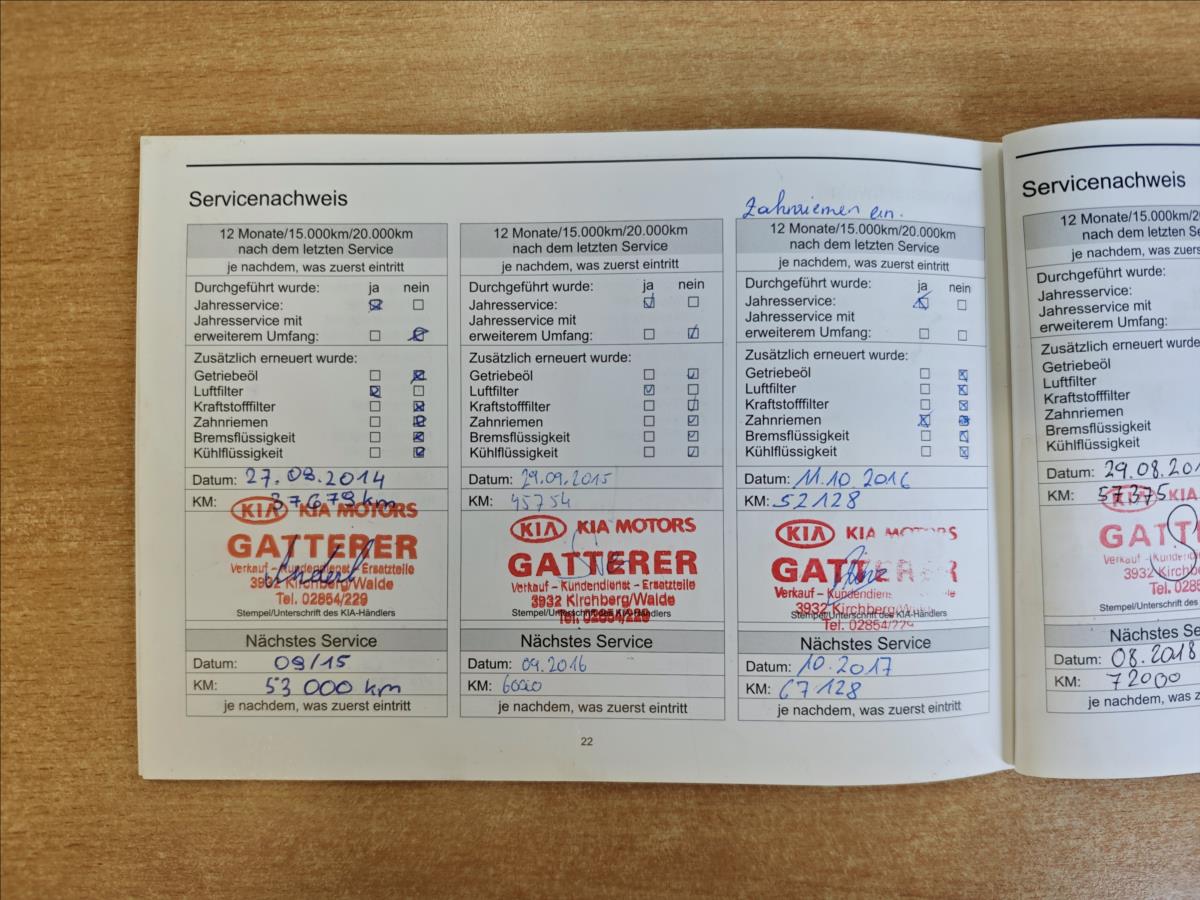 Servicenachweis
12 Monate/15.000km/20.000km
nach dem letzten Service
je nachdem, was zuerst eintritt
Durchgeführt wurde: ja nein
Jahresservice:
Jahresservice mit
erweiterem Umfang:
Zusätzlich erneuert wurde:
Getriebeöl
Luftfilter
Kraftstofffilter
Zahnriemen
Bremsflüssigkeit
Kühlflüssigkeit
Datum: 27.08.2014
KM: 37679 km
KIA KIA MOTORS
GATTERER
Verkauf - Kundendienst - Ersatzteile
3932 Kirchberg/Walde
Tel. 02854/229
Stempel/Unterschrift des KIA-Händlers
Nächstes Service
Datum: 09/15
KM: 53 000 km
je nachdem, was zuerst eintritt
12 Monate/15.000km/20.000km
nach dem letzten Service
je nachdem, was zuerst eintritt
Durchgeführt wurde: ja nein
Jahresservice:
Jahresservice mit
erweiterem Umfang:
Zusätzlich erneuert wurde:
Getriebeöl
Luftfilter
Kraftstofffilter
Zahnriemen
Bremsflüssigkeit
Kühlflüssigkeit
Datum: 29.09.2015
KM: 45754
KIA KIA MOTORS
GATTERER
Verkauf - Kundendienst - Ersatzteile
3932 Kirchberg/Walde
Tel. 02854/229
Stempel/Unterschrift des KIA-Händlers
Nächstes Service
Datum: 09.2016
KM: 6000
je nachdem, was zuerst eintritt
Zahnriemen ein.
12 Monate/15.000km/20.000km
nach dem letzten Service
je nachdem, was zuerst eintritt
Durchgeführt wurde: ja nein
Jahresservice:
Jahresservice mit
erweiterem Umfang:
Zusätzlich erneuert wurde:
Getriebeöl
Luftfilter
Kraftstofffilter
Zahnriemen
Bremsflüssigkeit
Kühlflüssigkeit
Datum: 11.10.2016
KM: 52128
KIA KIA MOTORS
GATTERER
Verkauf - Kundendiens
3932 Kirchberg/W
Tel. 02854/229
Stempel/Unterschrift des KIA-Händlers
Nächstes Service
Datum: 10.2017
KM: 67128
je nachdem, was zuerst eintritt
22
Servicenachweis
12 Monate/15.000km/2
nach dem letzten Se
je nachdem, was zuers
Durchgeführt wurde:
Jahresservice:
Jahresservice mit
erweiterem Umfang:
Zusätzlich erneuert wurde:
Getriebeöl
Luftfilter
Kraftstofffilter
Zahnriemen
Bremsflüssigkeit
Kühlflüssigkeit
Datum: 29.08.201
KM: 57375
KIA KIA
GATT
Verkauf - Kunden
3932 Kirchb
Tel. 028
Stempel/Unterschrift des
Nächstes Se
Datum: 08.2018
KM: 72000
je nachdem, was z